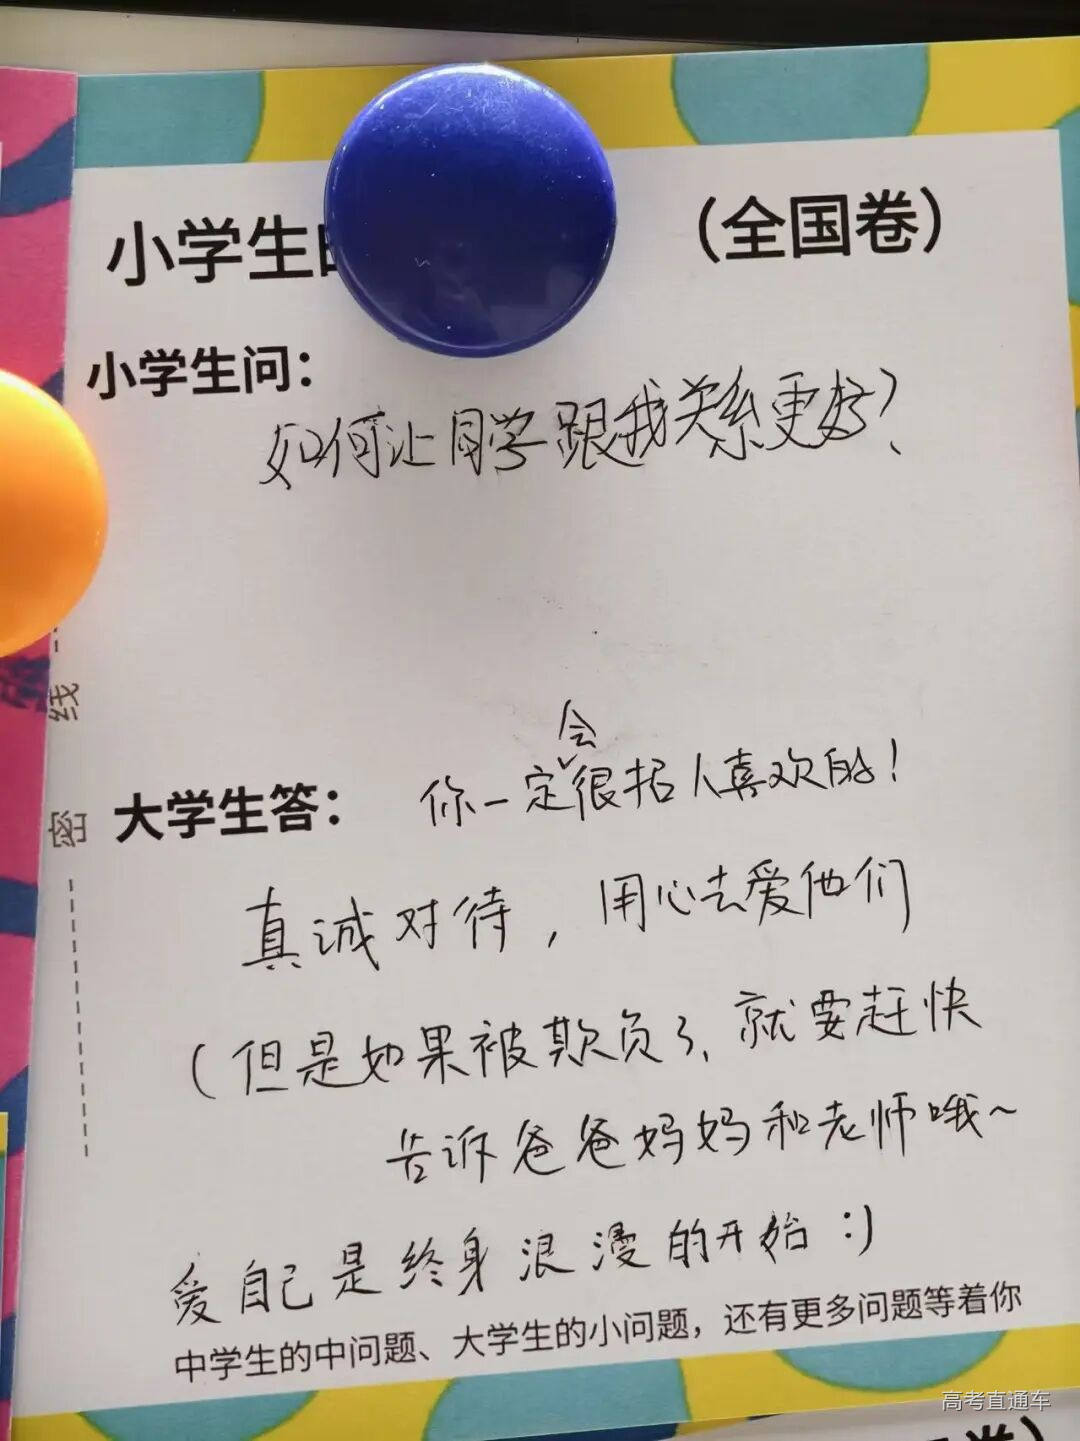 小学生 （全国卷）
小学生问：
如何让同学跟我关系更好？
会
大学生答： 你一定很招人喜欢的！
真诚对待，用心去爱他们
（但是如果被欺负了、就要赶快
告诉爸爸妈妈和老师哦~
爱自己是终身浪漫的开始 :)
中学生的中问题、大学生的小问题，还有更多问题等着你
线
密
高考直通车